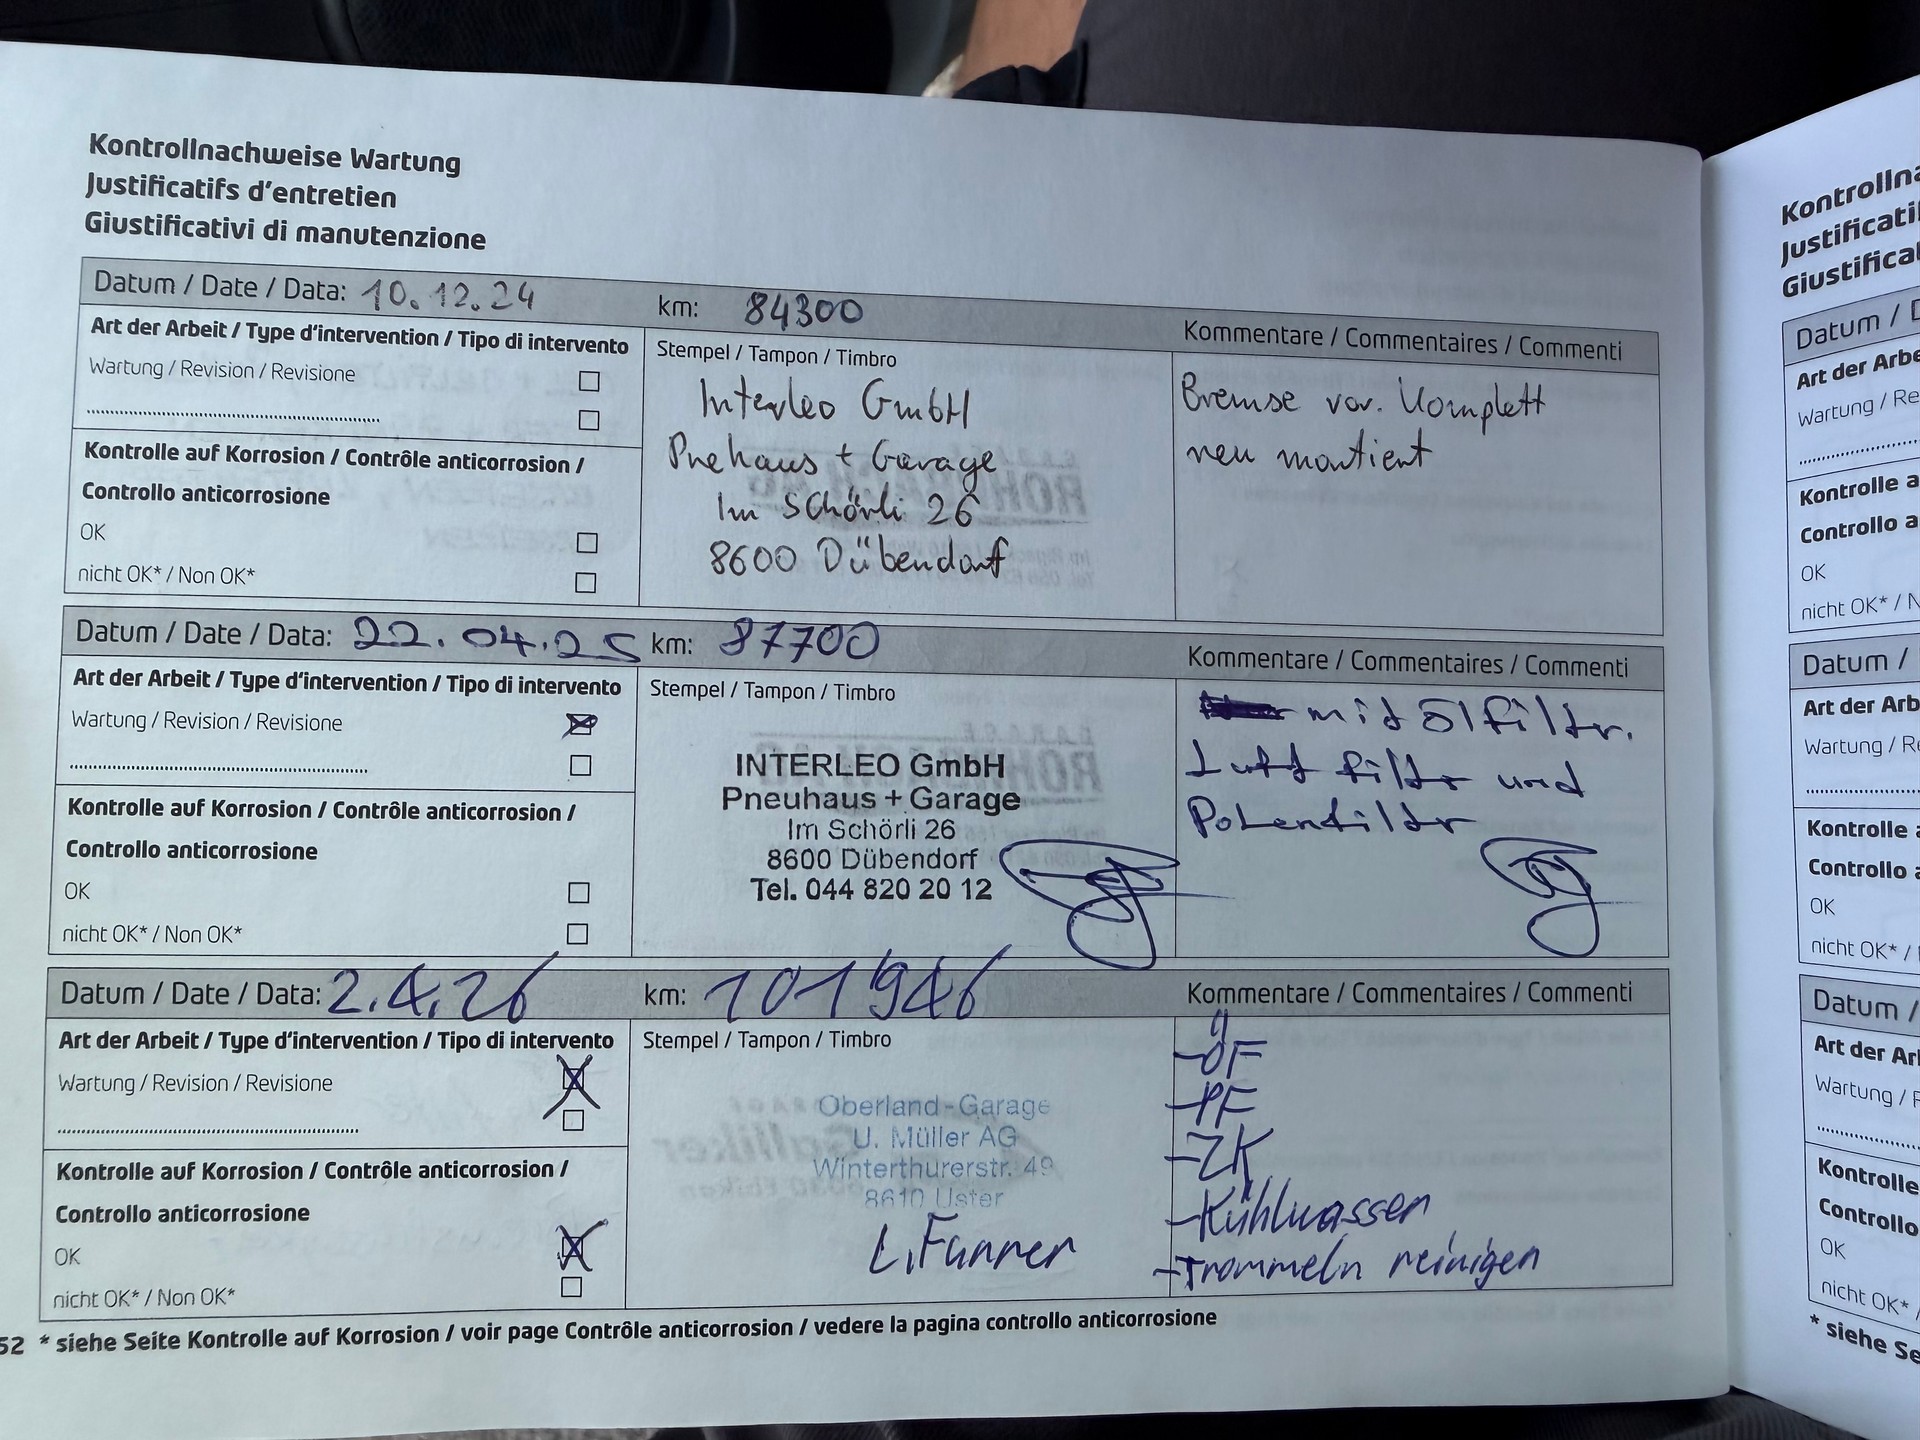 Kontrollnachweise Wartung
Justificatifs d'entretien
Giustificativi di manutenzione
Datum / Date / Data: 10.12.24 km: 84300 Kommentare / Commentaires / Commenti
Art der Arbeit / Type d'intervention / Tipo di intervento
Wartung / Revision / Revisione
Kontrolle auf Korrosion / Contrôle anticorrosion /
Controllo anticorrosione
OK
nicht OK* / Non OK*
Stempel / Tampon / Timbro
Interleo GmbH
Pnehaus + Garage
Im Schörli 26
8600 Dübendorf
Bremse vor. Komplett
neu montiert
Datum / Date / Data: 22.04.25 km: 87700 Kommentare / Commentaires / Commenti
Art der Arbeit / Type d'intervention / Tipo di intervento
Wartung / Revision / Revisione
Kontrolle auf Korrosion / Contrôle anticorrosion /
Controllo anticorrosione
OK
nicht OK* / Non OK*
Stempel / Tampon / Timbro
INTERLEO GmbH
Pneuhaus + Garage
Im Schörli 26
8600 Dübendorf
Tel. 044 820 20 12
mit ölfiltr.
Luft filtr und
Polenfiltr
Datum / Date / Data: 2.4.26 km: 101946 Kommentare / Commentaires / Commenti
Art der Arbeit / Type d'intervention / Tipo di intervento
Wartung / Revision / Revisione
Kontrolle auf Korrosion / Contrôle anticorrosion /
Controllo anticorrosione
OK
nicht OK* / Non OK*
Stempel / Tampon / Timbro
Oberland-Garage
U. Müller AG
Winterthurerstr. 49
8610 Uster
-ÖF
-PF
-ZK
-Kühlwasser
-Trommeln reinigen
52 * siehe Seite Kontrolle auf Korrosion / voir page Contrôle anticorrosion / vedere la pagina controllo anticorrosione
Datum /
Art der
Wartung /
Kontrolle
Controllo
OK
nicht OK* /
Datum /
Art der
Wartung /
Kontrolle
Controllo
OK
nicht OK* /
Datum /
Art der
Wartung /
Kontrolle
Controllo
OK
nicht OK*
* siehe